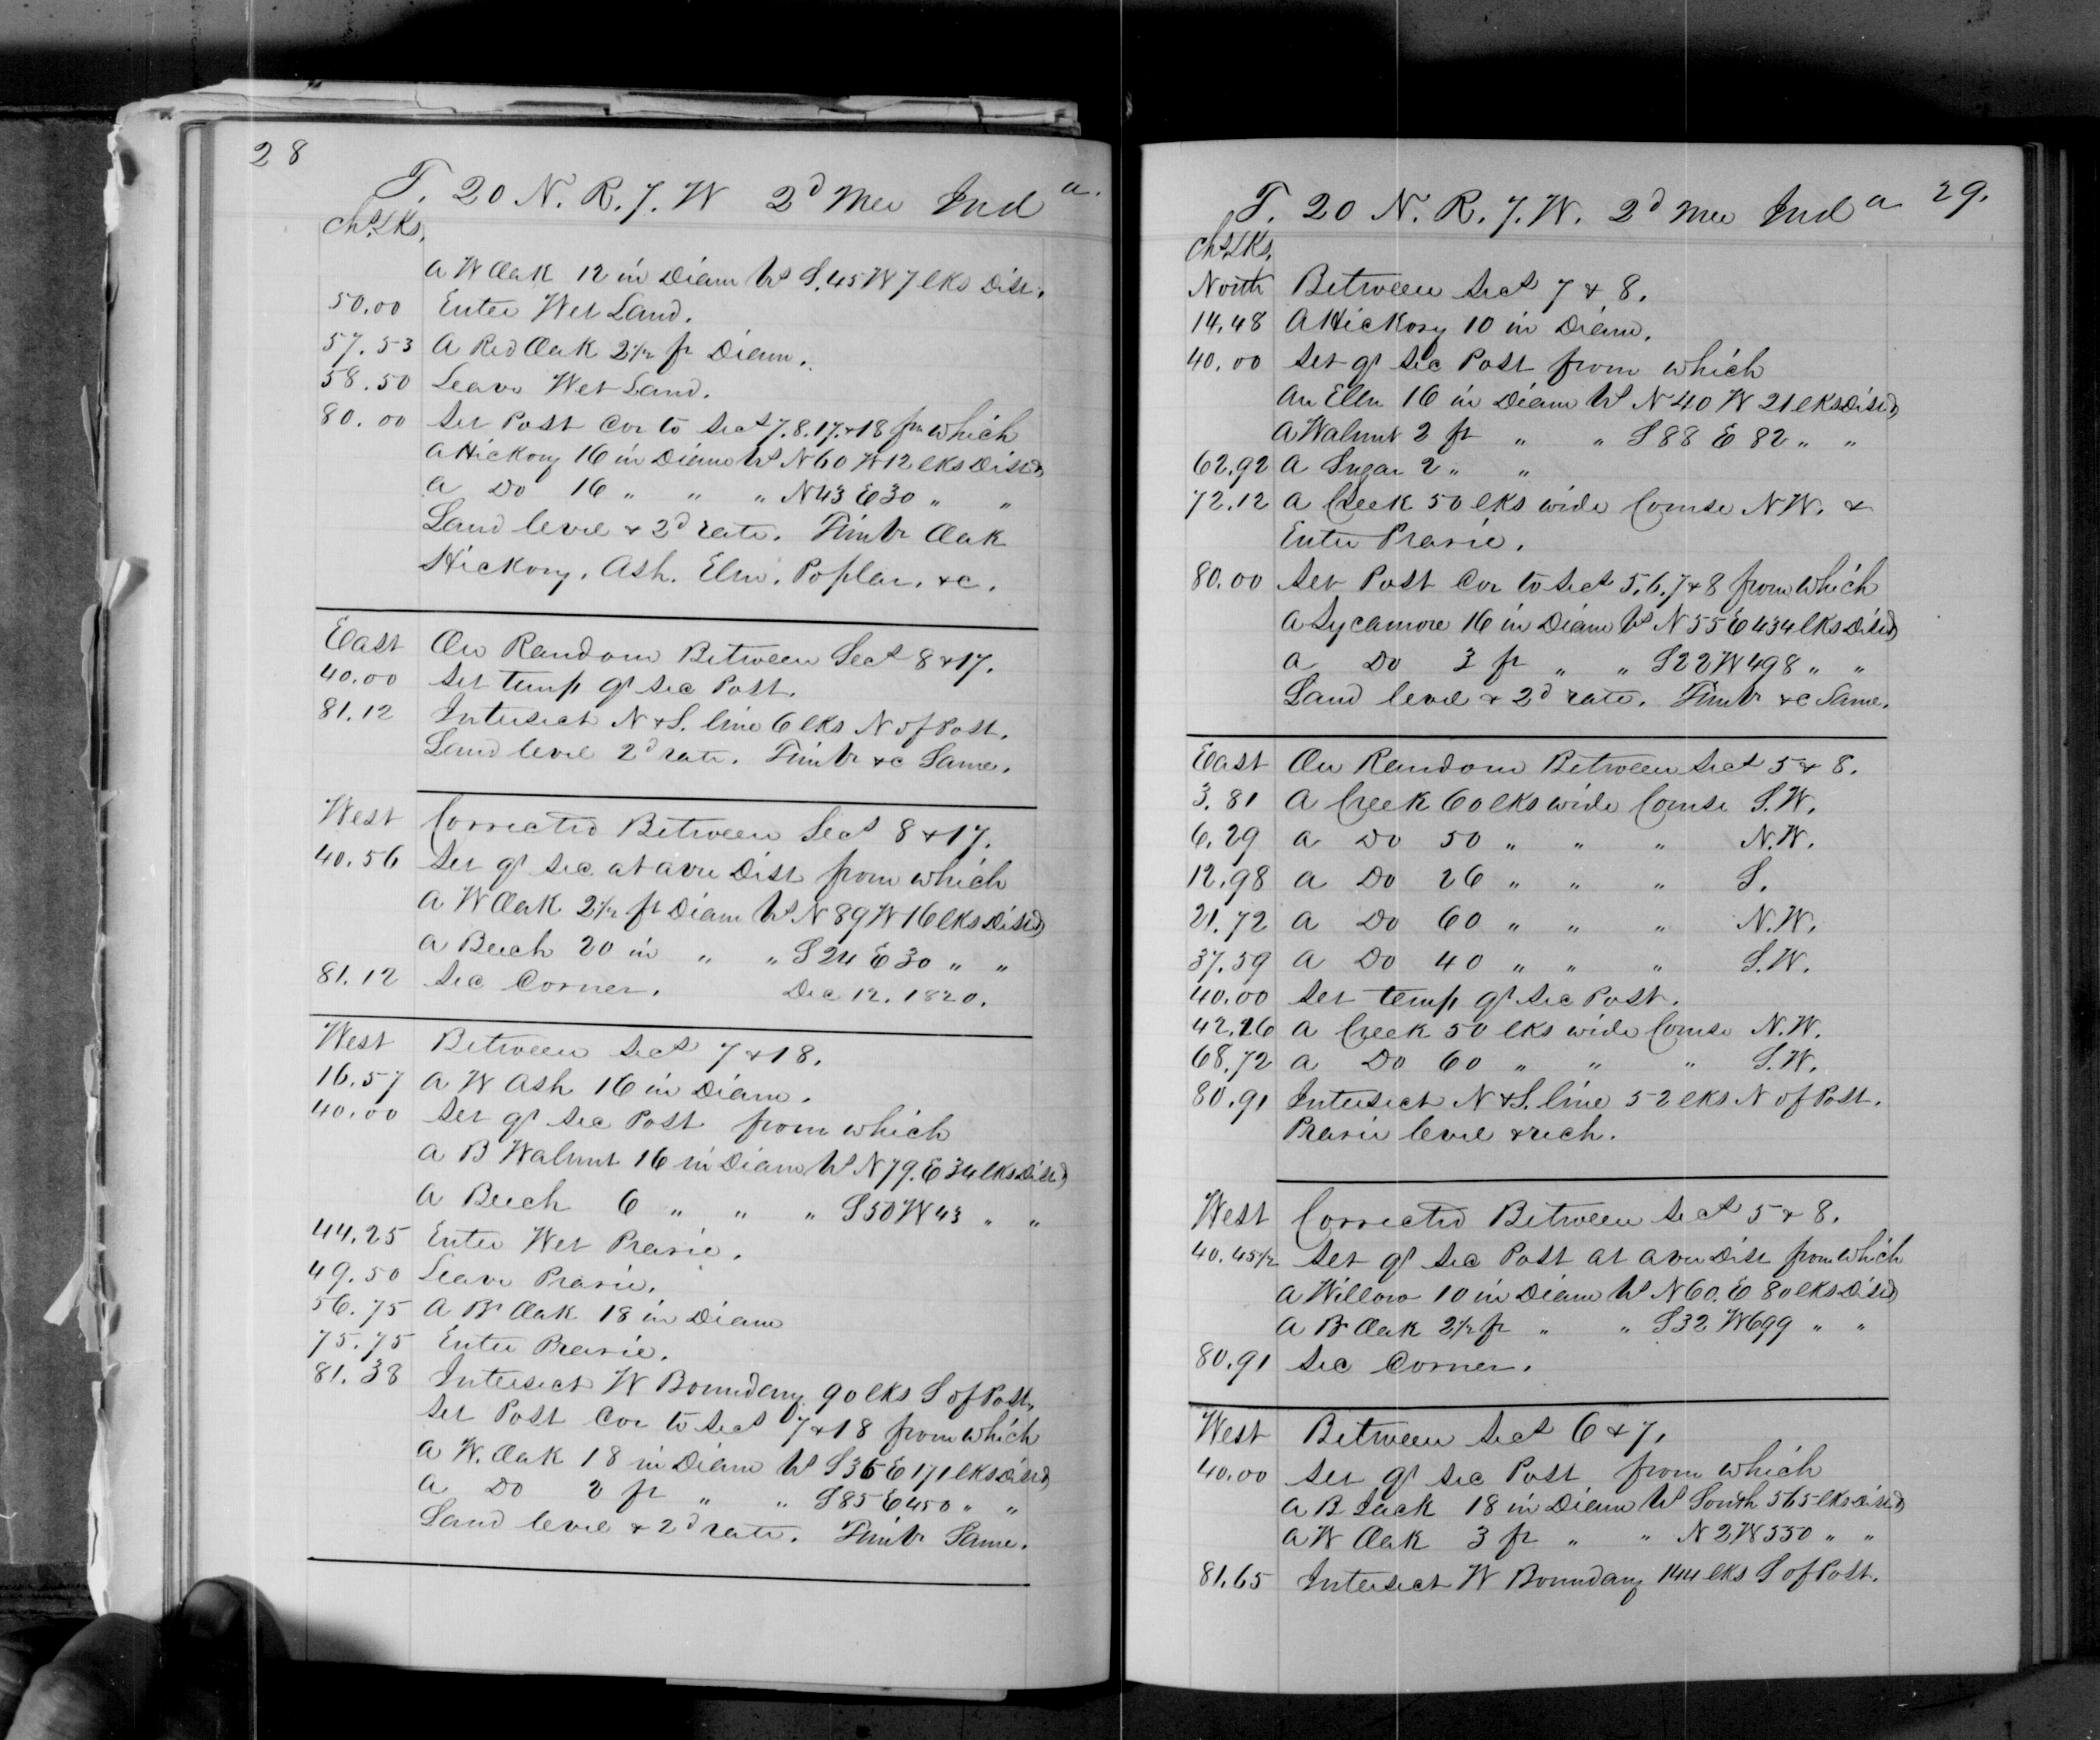 28
T. 20 N. R. 7. W 2d Mer Ind a.
Chs. Lks.
A W Oak 12 in Diam Brs S. 45 W 7 lks Dist.
50.00 Enter Wet Land.
57.53 A Red Oak 2½ ft Diam.
58.50 Leave Wet Land.
80.00 Set Post Cor to Secs 7. 8. 17. & 18 fm which
A Hickory 16 in Diam Brs N 60 W 12 lks Distd
a Do 16 " " " N 43 E 30 " "
Land level & 2d rate. Timbr Oak
Hickory, Ash. Elm. Poplar. &c.
East On Random Between Secs 8 & 17.
40.00 Set temp qr Sec Post.
81.12 Intersect N & S. line 6 lks N of Post.
Land level 2d rate. Timbr &c Same.
West Corrected Between Secs 8 & 17.
40.56 Set qr Sec at avre Dist from which
A W Oak 2½ ft Diam Brs N 89 W 16 lks Distd
A Beech 20 in " " S 24 E 30 " "
81.12 Sec Corner. Dec 12. 1820.
West Between Secs 7 & 18.
16.57 A W Ash 16 in Diam.
40.00 Set qr Sec Post from which
A B Walnut 16 in Diam Brs N 79. E 34 lks Distd
A Beech 6 " " " S 50 W 43 " "
44.25 Enter Wet Prarie.
49.50 Leave Prarie.
56.75 A Br Oak 18 in Diam
75.75 Enter Prarie.
81.38 Intersect W Boundary 90 lks S of Post.
Set Post Cor to Secs 7 & 18 from which
A W. Oak 18 in Diam Brs S 36 E 171 lks Distd
a Do 2 ft " " S 85 E 450 " "
Land level & 2d rate. Timbr Same.
T. 20 N. R. 7. W. 2d Mer Ind a 29.
Chs. Lks.
North Between Secs 7 & 8.
14.48 A Hickory 10 in Diam.
40.00 Set qr Sec Post from which
An Elm 16 in Diam Brs N 40 W 21 lks Distd
A Walnut 2 ft " " S 88 E 82 " "
62.92 A Sugar 2 " "
72.12 A Creek 50 lks wide Course N W. &
Enter Prarie.
80.00 Set Post Cor to Secs 5. 6. 7 & 8 from which
A Sycamore 16 in Diam Brs N 55 E 434 lks Distd
a Do 3 ft " " S 22 W 498 " "
Land level & 2d rate. Timbr &c Same.
East On Random Between Secs 5 & 8.
3.81 A Creek 60 lks wide Course S. W.
6.29 a Do 50 " " " N. W.
12.98 a Do 26 " " " S.
21.72 a Do 60 " " " N. W.
37.59 a Do 40 " " " S. W.
40.00 Set temp qr Sec Post.
42.26 A Creek 50 lks wide Course N. W.
68.72 a Do 60 " " " S. W.
80.91 Intersect N & S. line 52 lks N of Post.
Prarie level & rich.
West Corrected Between Secs 5 & 8.
40.45½ Set qr Sec Post at aver Dist from which
A Willow 10 in Diam Brs N 60. E 80 lks Distd
A Br Oak 2½ ft " " S 32 W 699 " "
80.91 Sec Corner.
West Between Secs 6 & 7.
40.00 Set qr Sec Post from which
A B Jack 18 in Diam Brs South 565 lks Distd
A W Oak 3 ft " " N 2 W 530 " "
81.65 Intersect W Boundary 144 lks S of Post.